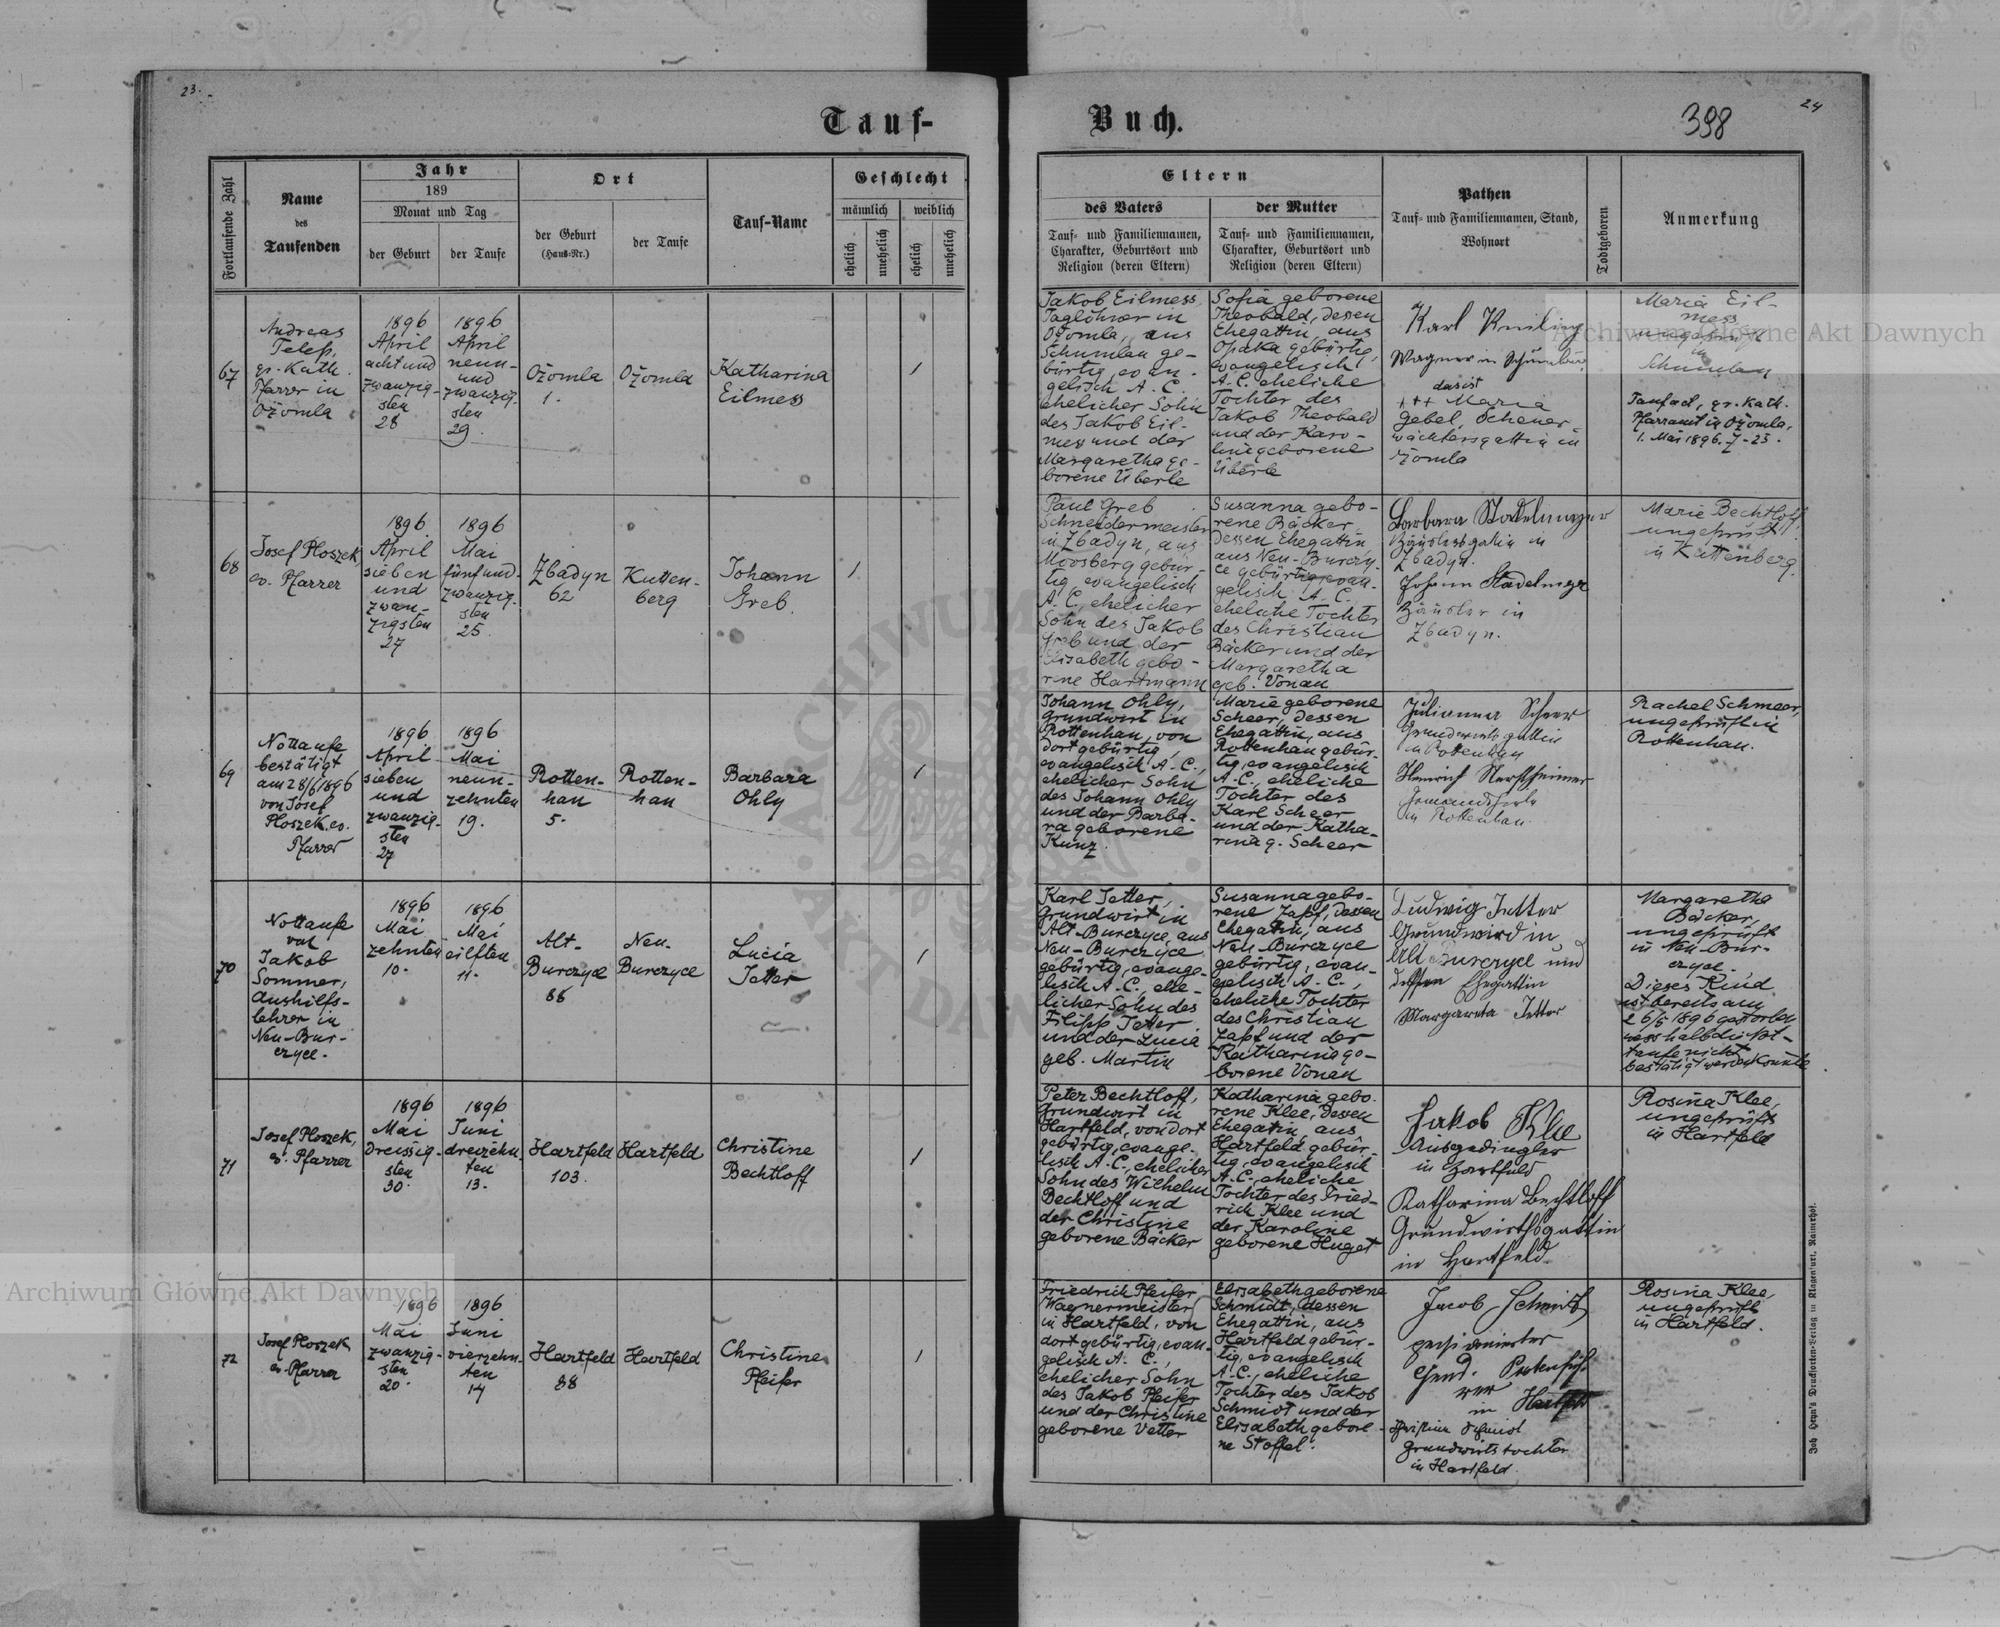 23.
24
Tauf-
Buch.
398
Fortlaufende Zahl
Name
des
Taufenden
Jahr
189
Monat und Tag
der Geburt
der Taufe
Ort
der Geburt
(Haus-Nr.)
der Taufe
Tauf-Name
Geschlecht
männlich
weiblich
ehelich
unehelich
ehelich
unehelich
Eltern
des Vaters
Tauf- und Familiennamen,
Charakter, Geburtsort und
Religion (deren Eltern)
der Mutter
Tauf- und Familiennamen,
Charakter, Geburtsort und
Religion (deren Eltern)
Pathen
Tauf- und Familiennamen, Stand,
Wohnort
Todtgeboren
Anmerkung
67
Andreas
Telep,
gr. Kath.
Pfarrer in
Ożomla
1896
April
acht und
zwanzig-
sten
28
1896
April
neun-
und
zwanzig-
sten
29.
Ożomla
1.
Ożomla
Katharina
Eilmess
1
Jakob Eilmess
Taglöhner in
Ożomla, aus
Schumlau ge-
bürtig, evan-
gelisch A. C.
ehelicher Sohn
des Jakob Eil-
mess und der
Margaretha ge-
borene Überle
Sofia geborene
Theobald, dessen
Ehegattin, aus
Opaka gebürtig,
evangelisch
A. C. eheliche
Tochter des
Jakob Theobald
und der Karo-
line geborene
Überle
Karl
Wagner in
das ist
+++ Maria
Gebel,
wächtersgattin in
Ożomla
Maria Eil-
mess
ungeprüft
in
Schumlau
Taufact, gr. Kath.
Pfarramt in Ożomla,
1. Mai 1896. 7-23.
68
Josef Ploszek
ev. Pfarrer
1896
April
sieben
und
zwan-
zigsten
27
1896
Mai
fünf und
zwanzig-
sten
25.
Zbadyn
62
Kutten-
berg
Johann
Greb.
1
Paul Greb
Schneidermeister
in Zbadyn, aus
Moosberg gebür-
tig, evangelisch
A. C., ehelicher
Sohn des Jakob
Greb und der
Elisabeth gebo-
rne Hartmann
Susanna gebo-
rene Bäcker
dessen Ehegattin
aus Neu-Burczy-
ce gebürtig, evan-
gelisch A. C.
eheliche Tochter
des Christian
Bäcker und der
Margaretha
geb. Vonau
Barbara Stadelmayer
Häuslersgattin in
Zbadyn.
Johann Stadelmayer
Häusler in
Zbadyn.
Marie Bechtloff
ungeprüft
in Kuttenberg.
69
Nottaufe
bestätigt
am 28/6 1896
von Josef
Ploszek ev.
Pfarrer
1896
April
sieben
und
zwanzig-
sten
27
1896
Mai
neun-
zehnten
19.
Rotten-
han
5.
Rotten-
han
Barbara
Ohly
1
Johann Ohly,
Grundwirt in
Rottenhan, von
dort gebürtig,
evangelisch A. C.,
ehelicher Sohn
des Johann Ohly
und der Barba-
ra geborene
Kunz.
Marie geborene
Scheer, dessen
Ehegattin, aus
Rottenhan gebür-
tig, evangelisch
A. C., eheliche
Tochter des
Karl Scheer
und der Katha-
rina g. Scheer
Julianna Scheer
Grundwirtsgattin
in Rottenhan
Heinrich
in Rottenhan
Rachel Schmeer,
ungeprüft in
Rottenhan.
70
Nottaufe
von
Jakob
Sommer,
Aushilfs-
lehrer in
Neu-Bur-
czyce.
1896
Mai
zehnten
10.
1896
Mai
eilften
11.
Alt-
Burczyce
86
Neu-
Burczyce
Lucia
Jetter
1
Karl Jetter,
Grundwirt in
Alt-Burczyce aus
Neu-Burczyce
gebürtig, evange-
lisch A. C., ehe-
licher Sohn des
Filipp Jetter
und der Lucia
geb. Martin
Susanna gebo-
rene Zapf, dessen
Ehegattin, aus
Neu-Burczyce
gebürtig, evan-
gelisch A. C.,
eheliche Tochter
des Christian
Zapf und der
Katharina ge-
borene Vonau
Ludwig Jetter
Grundwird in
Alt Burczyce und
dessen Ehegattin
Margareta Jetter
Margaretha
Bäcker,
ungeprüft
in Neu-Bur-
czyce.
Dieses Kind
ist bereits am
26/5 1896 gestorben
wesshalb die Not-
taufe nicht
bestätigt werden konnte
71
Josef Ploszek,
ev. Pfarrer
1896
Mai
dreissig-
sten
30.
1896
Juni
dreizehn-
ten
13.
Hartfeld
103.
Hartfeld
Christine
Bechtloff
1
Peter Bechtloff,
Grundwirt in
Hartfeld, von dort
gebürtig, evange-
lisch A. C., ehelicher
Sohn des Wilhelm
Bechtloff und
der Christine
geborene Bäcker
Katharina gebo-
rene Klee, dessen
Ehegattin, aus
Hartfeld gebür-
tig, evangelisch
A. C., eheliche
Tochter des Fried-
rich Klee und
der Karoline
geborene Huget
Jakob Klee
Ausgedingler
in Hartfeld
Katharina Bechtloff
Grundwirthsgattin
in Hartfeld.
Rosina Klee,
ungeprüft
in Hartfeld
72
Josef Ploszek
ev. Pfarrer
1896
Mai
zwanzig-
sten
20.
1896
Juni
vierzehn-
ten
14
Hartfeld
88
Hartfeld
Christine
Pfeifer
1
Friedrich Pfeifer,
Wagnermeister
in Hartfeld, von
dort gebürtig, evan-
gelisch A. C.,
ehelicher Sohn
des Jakob Pfeifer
und der Christine
geborene Vetter
Elisabeth geborene
Schmidt, dessen
Ehegattin, aus
Hartfeld gebür-
tig, evangelisch
A. C., eheliche
Tochter des Jakob
Schmidt und der
Elisabeth gebore-
ne Stoffel.
Jacob Schmidt
pensionierter
in Hartfeld
Christina Schmidt
Grundwirtstochter
in Hartfeld.
Rosina Klee,
ungeprüft
in Hartfeld.
Joh. Heyn's Drucksorten-Verlag in Klagenfurt, Rainerhof.
Archiwum Główne Akt Dawnych
Archiwum Główne Akt Dawnych